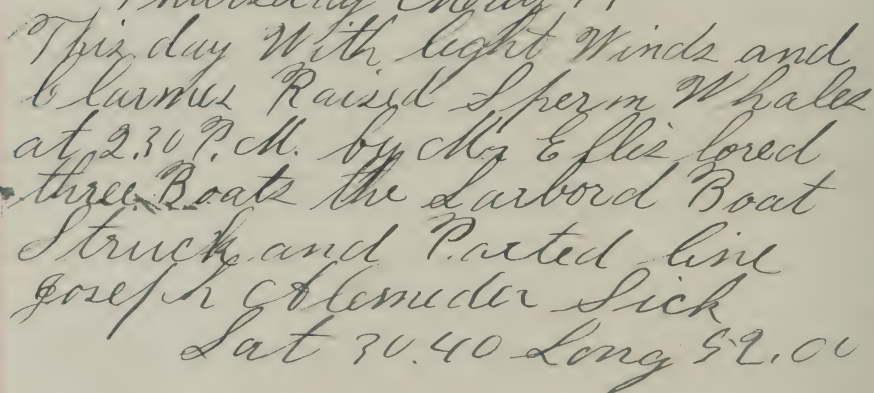 Thursday May 19
This day With light Winds and
Clarmes Raised Sperm Whales
at 2.30 P.M. by Mr Ellis lored
three Boats the Larbord Boat
Struck and Parted line
Joseph Alemeder Sick
Lat 30.40 Long 52.00